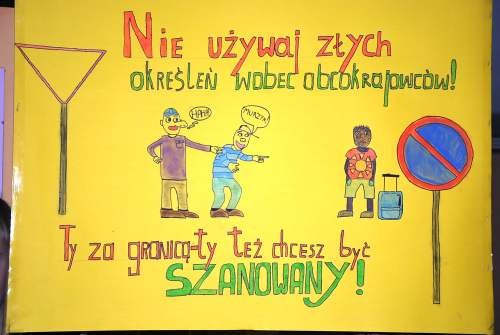 Nie używaj złych
określeń wobec obcokrajowców!
HAHA
MURZYN!
Ty za granicą-ty też chcesz być
SZANOWANY!